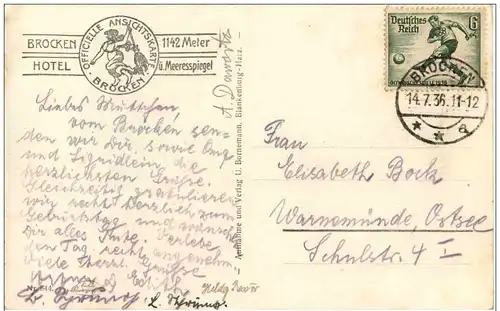 BROCKEN
HOTEL
OFFICIELLE ANSICHTSKARTE
BROCKEN
1142 Meter
ü. Meeresspiegel
Deutsches
Reich
6
BROCKEN
14.7.36.11-12
a
Liebes Muttchen,
vom Brocken sen-
den wir Dir, sowie
und Sigridlein die
herzlichsten Grüße.
Gleichzeitig gratulieren
wir recht herzlich zum
Geburtstag und wünschen
Dir alles Gute. Verlebe
den Tag recht angenehm.
Viele herzl. Grüße
Aufnahme und Verlag U. Bornemann, Blankenburg-Harz.
Frau
Elisabeth Bock
Warnemünde, Ostsee
Schulstr. 4 I